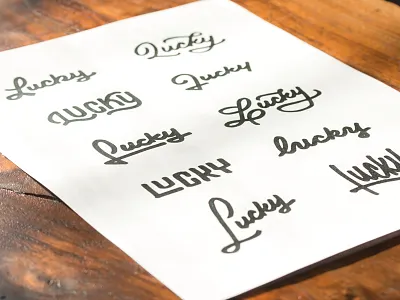 Lucky
Lucky
Lucky
Lucky
Lucky
Lucky
lucky
LUCKY
Lucky
Lucky